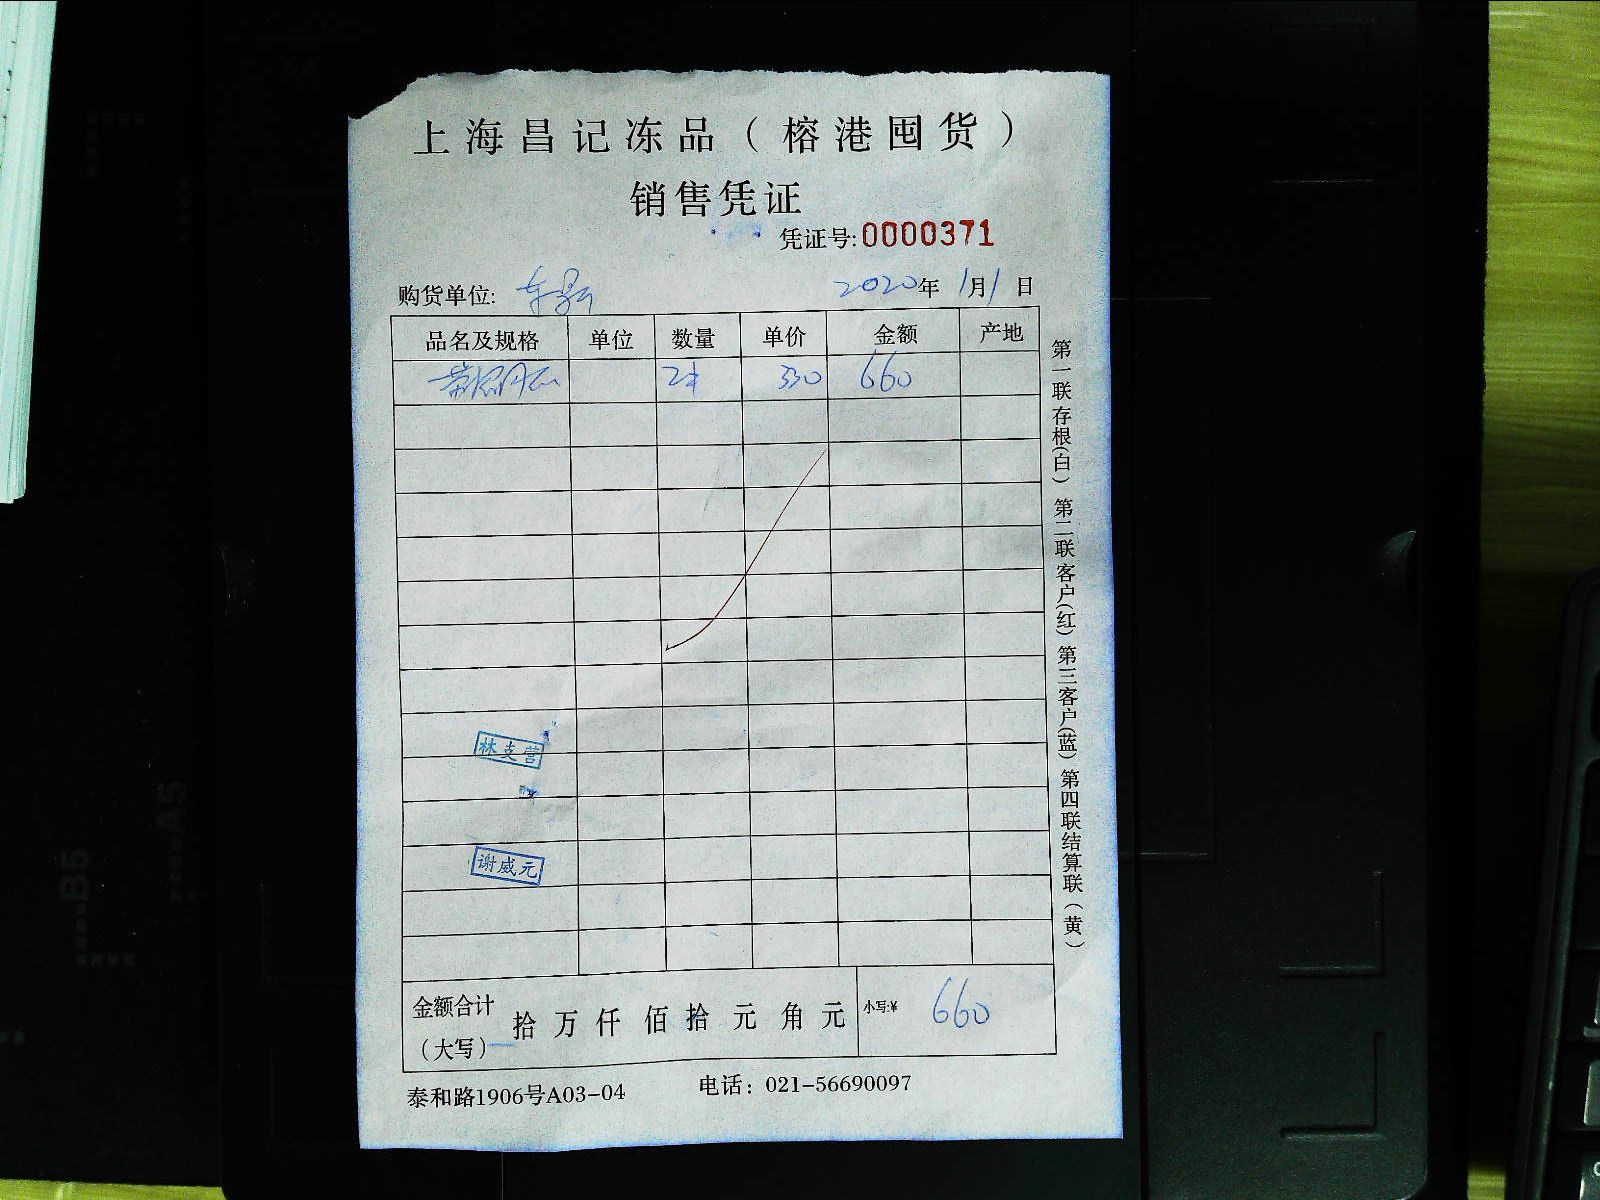 上海昌记冻品（榕港囤货）
销售凭证
凭证号:0000371
购货单位: 2020年1月1日
品名及规格 单位 数量 单价 金额 产地
2件 330 660
林支营
谢威元
金额合计（大写） 拾 万 仟 佰 拾 元 角 元 小写:¥ 660
泰和路1906号A03-04 电话：021-56690097
第一联存根(白) 第二联客户(红) 第三客户(蓝) 第四联结算联(黄)
B5
A5